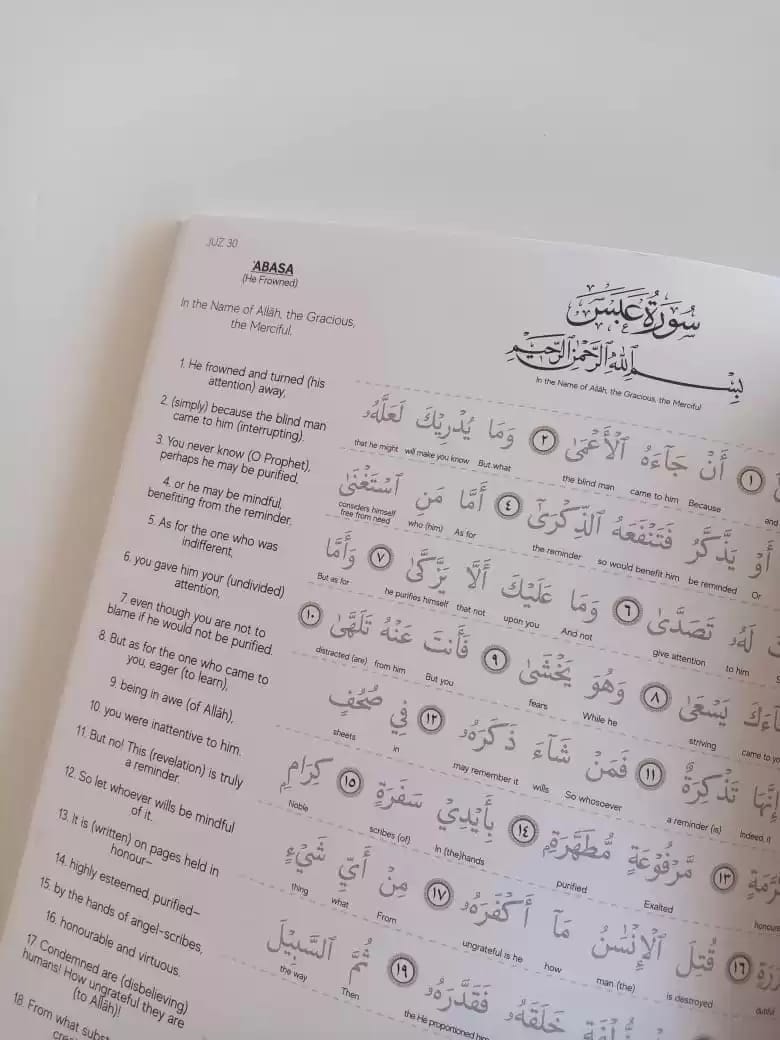 JUZ 30
'ABASA
(He Frowned)
In the Name of Allāh, the Gracious,
the Merciful.
1. He frowned and turned (his
attention) away,
2. (simply) because the blind man
came to him (interrupting).
3. You never know (O Prophet),
perhaps he may be purified,
4. or he may be mindful,
benefiting from the reminder.
5. As for the one who was
indifferent,
6. you gave him your (undivided)
attention,
7. even though you are not to
blame if he would not be purified.
8. But as for the one who came to
you, eager (to learn),
9. being in awe (of Allāh),
10. you were inattentive to him.
11. But no! This (revelation) is truly
a reminder.
12. So let whoever wills be mindful
of it.
13. It is (written) on pages held in
honour–
14. highly esteemed, purified–
15. by the hands of angel-scribes,
16. honourable and virtuous.
17. Condemned are (disbelieving)
humans! How ungrateful they are
(to Allāh)!
18. From what
سُورَةُ عَبَسَ
بِسْمِ ٱللَّهِ ٱلرَّحْمَٰنِ ٱلرَّحِيمِ
In the Name of Allāh, the Gracious, the Merciful
١ أَن جَآءَهُ ٱلْأَعْمَىٰ ٢ وَمَا يُدْرِيكَ لَعَلَّهُۥ
that he might will make you know But what the blind man came to him Because and
أَوْ يَذَّكَّرُ فَتَنفَعَهُ ٱلذِّكْرَىٰٓ ٤ أَمَّا مَنِ ٱسْتَغْنَىٰ
considers himself free from need who (him) As for the reminder so would benefit him be reminded Or
لَهُۥ تَصَدَّىٰ ٦ وَمَا عَلَيْكَ أَلَّا يَزَّكَّىٰ ٧ وَأَمَّا
But as for he purifies himself that not upon you And not give attention to him
يَسْعَىٰ ٨ وَهُوَ يَخْشَىٰ ٩ فَأَنتَ عَنْهُ تَلَهَّىٰ ١٠
distracted (are) from him But you fears While he striving came to
إِنَّهَا تَذْكِرَةٌ ١١ فَمَن شَآءَ ذَكَرَهُۥ ١٢ فِي صُحُفٍ
sheets in may remember it wills So whosoever a reminder (is) Indeed, it
١٣ مَّرْفُوعَةٍ مُّطَهَّرَةٍۭ ١٤ بِأَيْدِي سَفَرَةٍ ١٥ كِرَامٍ
Noble scribes (of) In (the)hands purified Exalted
١٦ قُتِلَ ٱلْإِنسَٰنُ مَآ أَكْفَرَهُۥ ١٧ مِنْ أَيِّ شَيْءٍ
thing what From ungrateful is he how man (the) is destroyed dutiful
خَلَقَهُۥ فَقَدَّرَهُۥ ١٩ ثُمَّ ٱلسَّبِيلَ
the way Then the He proportioned him